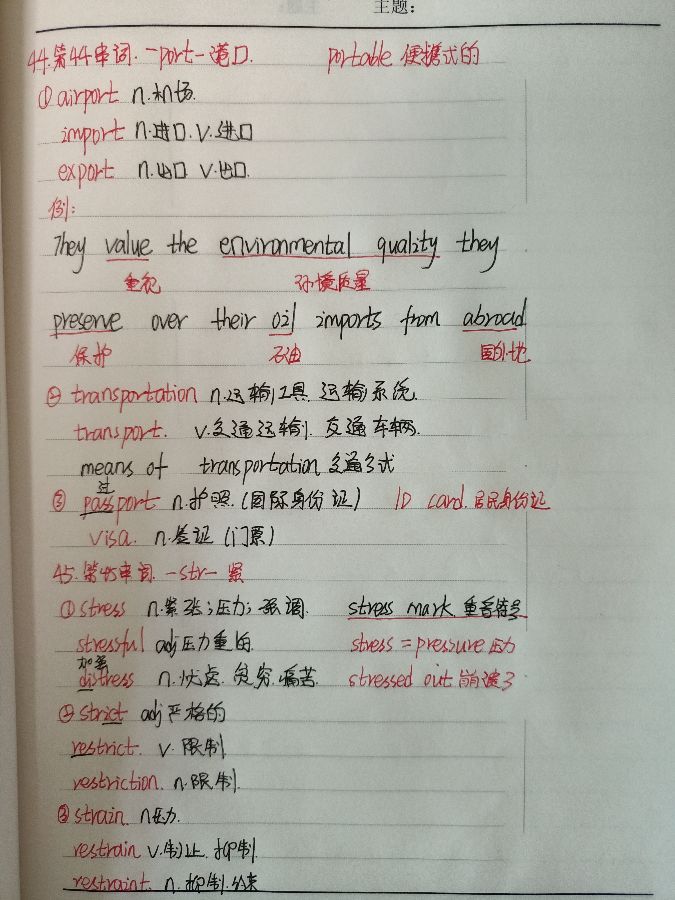 主题:
44.第44串词.-port-港口. portable 便携式的
①airport n.机场.
import n.进口.v.进口
export n.出口 v.出口.
例:
They value the environmental quality they
重视 环境质量
preserve over their oil imports from abroad
保护 石油 国外地
②transportation n.运输工具.运输系统.
transport. v.交通运输.交通车辆.
means of transportation 交通方式
过
③passport n.护照.(国际身份证) ID card.居民身份证
visa. n.签证(门票)
45.第45串词.-str-紧
①stress n.紧张;压力;强调. stress mark 重音符号
stressful adj压力重的. stress=pressure.压力
加紧
distress n.忧虑.贫穷.痛苦. stressed out 崩溃了
②strict adj严格的
restrict. v.限制
restriction.n.限制.
③strain.n压力.
restrain v.制止.抑制.
restraint. n.抑制.约束